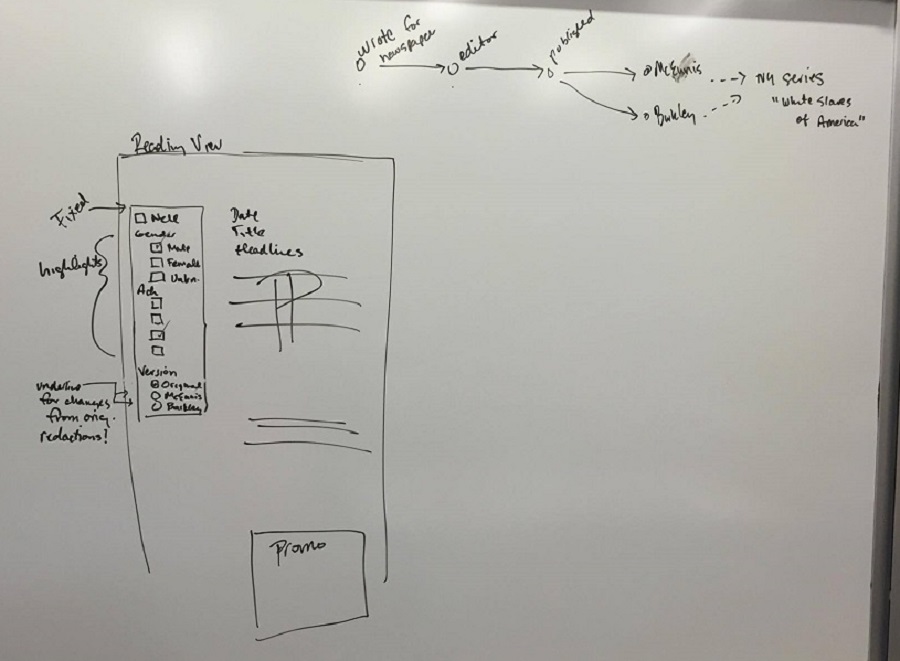 wrote for
newspaper
editor
published
McEnnis
NY series
Bulkley
"White Slaves
of America"
Reading View
Fixed
Nell
Gender
Male
Female
Unkn.
highlights
Version
Original
McEnnis
Bulkley
underline
for changes
from orig.
redactions!
Date
Title
Headlines
Promo